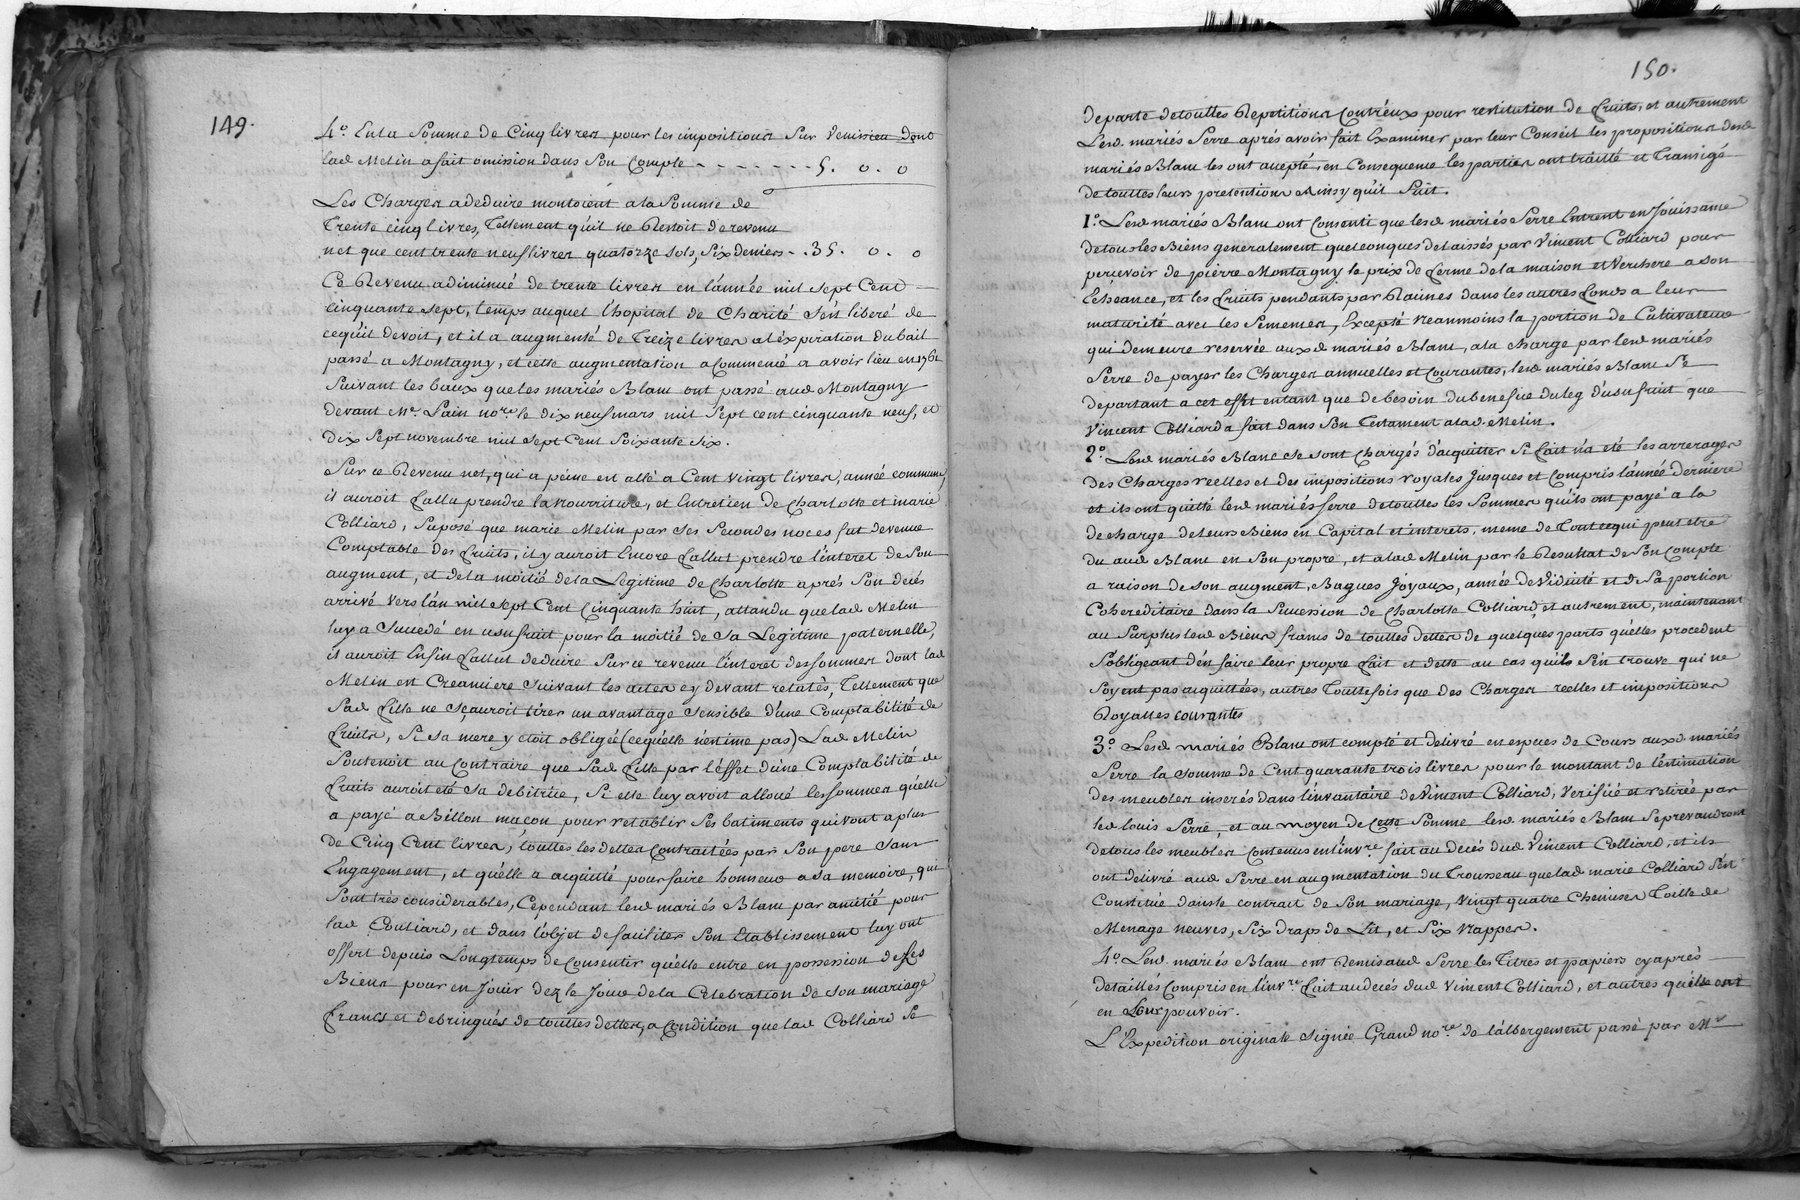 149.
4.° En la Somme de Cinq livres pour les impositions Sur Venissieu dont
lad Melin a fait omission dans Son Compte - - - - - - - 5. 0. 0
Les Charges a deduire montoient a la Somme de
Trente cinq livres, Tellement qu'il ne Restoit de revenu
net que cent trente neuf livres quatorze sols, Six deniers - . 35. 0. 0
Ce Revenu a diminué de trente livres en l'année mil sept Cent
cinquante sept, temps auquel l'hopital de Charité s'est liberé de
ce qu'il devoit, et il a augmenté de Treize livres a l'éxpiration du bail
passé a Montagny, et cette augmentation a Commencé a avoir lieu en 1761
Suivant les baux que les mariés Blanc ont passé aud Montagny
devant Me. Lain no.re le dix neuf mars mil Sept cent cinquante neuf, et
dix Sept novembre mil Sept Cent Soixante Six.
Sur ce Revenu net, qui a peine est allé a Cent vingt livres, année commune,
il auroit fallu prendre la nourriture, et Entretien de Charlotte et marie
Colliard, Suposé que marie Melin par Ses Secondes noces fut devenue
Comptable des fruits, il y auroit Encore fallut prendre l'interet de Son
augment, et de la moitié de la Legitime de Charlotte aprés Son decés
arrivé vers l'an mil Sept Cent Cinquante huit, attandu que lad Melin
luy a Succedé en usufruit pour la moitié de Sa Legitime paternelle,
il auroit Enfin fallut deduire Sur ce revenu l'interet des Sommes dont lad
Melin est Creanciere Suivant les actes cy devant relatés, Tellement que
Sad fille ne Sçauroit tirer un avantage Sensible d'une Comptabilité de
fruits, Si Sa mere y etoit obligée (ce qu'elle n'estime pas) Lad Melin
Soutenoit au Contraire que Sad fille par l'éffet d'une Comptabilité de
fruits auroit été Sa debitrice, Si elle luy avoit alloué les Sommes qu'elle
a payé a Billon maçon pour retablir Ses batiments qui vont a plus
de Cinq Cent livres, touttes les dettes Contractées par Son pere Sans
Engagement, et qu'elle a acquitté pour faire honneur a Sa memoire, qui
Sont très considerables, Cependant lesd mariés Blanc par amitié pour
lad Colliard, et dans l'objet de faciliter Son Etablissement luy ont
offert depuis Longtemps de Consentir qu'elle entre en possession de Ses
Biens pour en Jouir dez le Jour de la Celebration de Son mariage
francs et debringués de touttes dettes, a Condition que lad Colliard Se
150.
departe de touttes Repetitions Contr'eux pour restitution de fruits, et autrement
Lesd. mariés Serre aprés avoir fait Examiner par leur Conseil les propositions desd
mariés Blanc les ont accepté, en Consequence les parties ont traitté et Transigé
de touttes leurs pretentions Ainsy qu'il Suit.
1.° Lesd mariés Blanc ont Consenti que lesd mariés Serre Entrent en Jouissance
de tous les Biens generalement quelconques delaissés par Vincent Colliard pour
percevoir de pierre Montagny le prix de ferme de la maison et Verchere a Son
Echeance, et les fruits pendants par Racines dans les autres fonds a leur
maturité avec les Semences, Excepté neanmoins la portion de Cultivateur
qui demeure reservée auxd mariés Blanc, a la charge par lesd mariés
Serre de payer les Charges annuelles et Courantes, lesd mariés Blanc Se
departant a cet effet entant que de besoin du benefice du leg d'usufruit que
Vincent Colliard a fait dans Son Testament a lad. Melin.
2.° Lesd mariés Blanc Se sont Chargés d'acquitter Si fait n'a eté les arrerages
des Charges reelles et des impositions royales Jusques et Compris l'année derniere
et ils ont quitté lesd mariés Serre de touttes les Sommes qu'ils ont payé a la
decharge de leurs Biens en Capital et interets, meme de Tout ce qui peut etre
du aud Blanc en Son propre, et a lad Melin par le Resultat de Son Compte
a raison de son augment, Bagues Joyaux, année de Viduité et de Sa portion
Cohereditaire dans la Succession de Charlotte Colliard, et autrement, maintenant
au Surplus lesd Biens francs de touttes dettes de quelques parts qu'elles procedent
S'obligeant d'en faire leur propre fait et dette au cas qu'ils S'en trouve qui ne
Soyent pas acquittées, autres Touttefois que des Charges reelles et impositions
Royalles courantes
3.° Lesd mariés Blanc ont compté et delivré en especes de Cours auxd. mariés
Serre la Somme de Cent quarante trois livres pour le montant de l'estimation
des meubles inserés dans l'invantaire de Vincent Colliard, Verifié et retirée par
led louis Serre, et au moyen de Cette Somme lesd mariés Blanc Se prevaudront
de tous les meubles Contenus en l'inv.re fait au decés dud Vincent Colliard, et ils
ont delivré aud Serre en augmentation du Trousseau que lad marie Colliard S'est
Constitué dans le contrat de Son mariage, Vingt quatre Chemises Toille de
Menage neuves, Six draps de Lit, et Six Nappes.
4.° Lesd. mariés Blanc ont Remis aud Serre les Titres et papiers cy aprés
detaillés Compris en l'inv.re fait au decés dud Vincent Colliard, et autres qu'elle ont
en Leur pouvoir.
L'Expedition originale Signée Grand no.re de l'albergement passé par Me